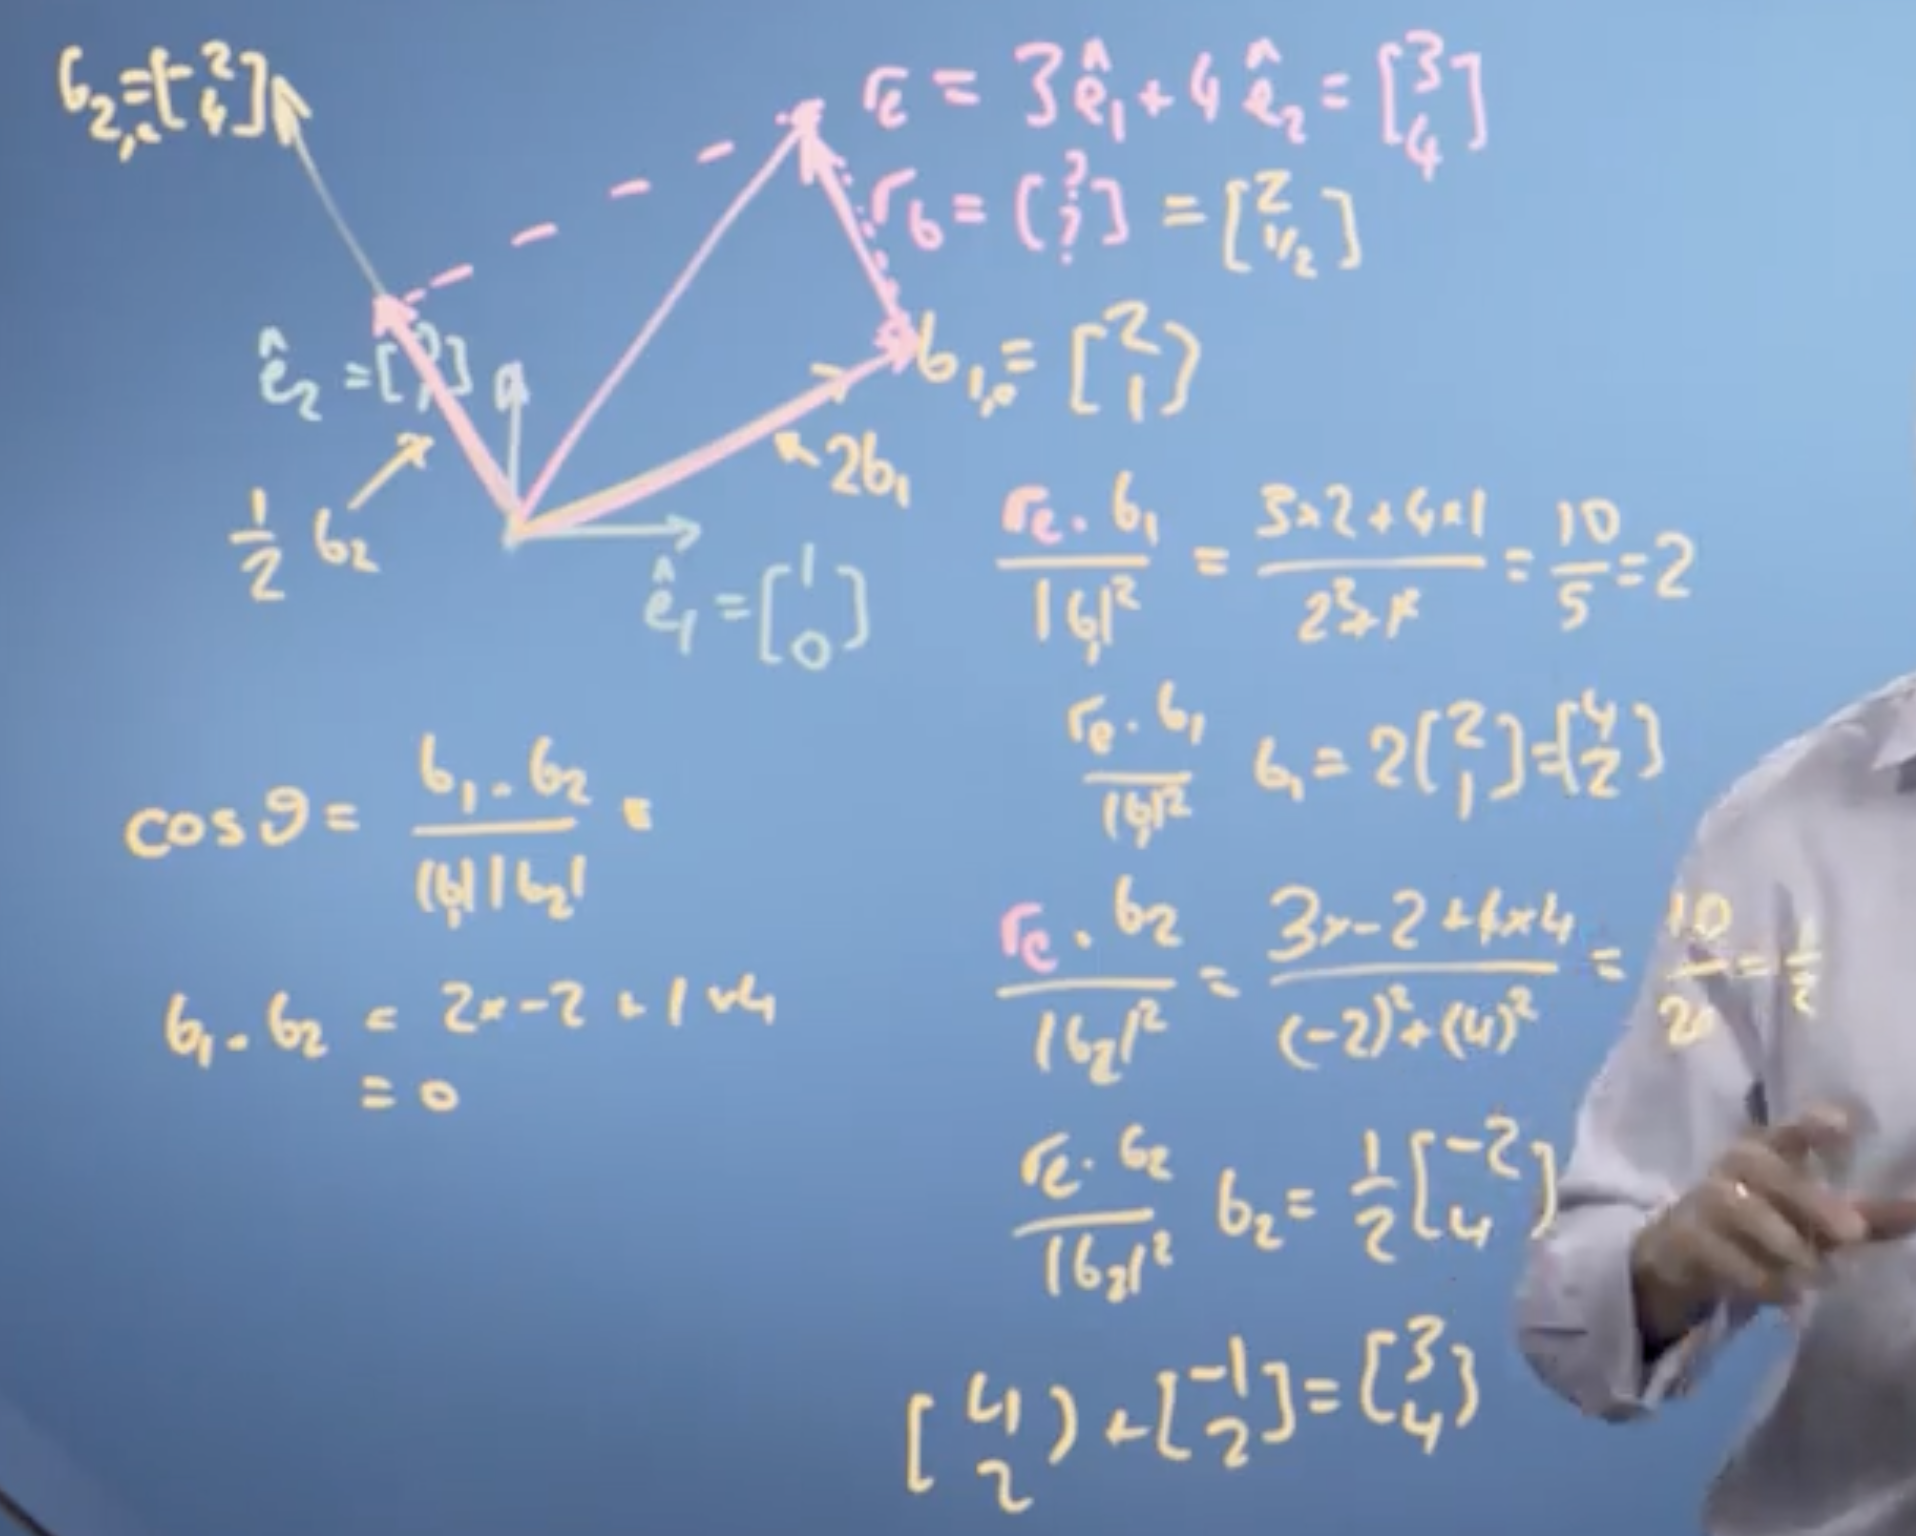 b₂,ₑ = [-2 4]
rₑ = 3ê₁ + 4ê₂ = [3 4]
r_b = [? ?] = [2 1/2]
ê₂ = [0 1]
b₁,ₑ = [2 1]
2b₁
1/2 b₂
ê₁ = [1 0]
rₑ · b₁ / |b₁|² = 3×2 + 4×1 / 2² + 1² = 10/5 = 2
rₑ · b₁ / |b₁|² b₁ = 2 [2 1] = [4 2]
cos θ = b₁ · b₂ / |b₁| |b₂| =
rₑ · b₂ / |b₂|² = 3×-2 + 4×4 / (-2)² + (4)² = 10/20 = 1/2
b₁ · b₂ = 2×-2 + 1×4
= 0
rₑ · b₂ / |b₂|² b₂ = 1/2 [-2 4]
[4 2] + [-1 2] = [3 4]